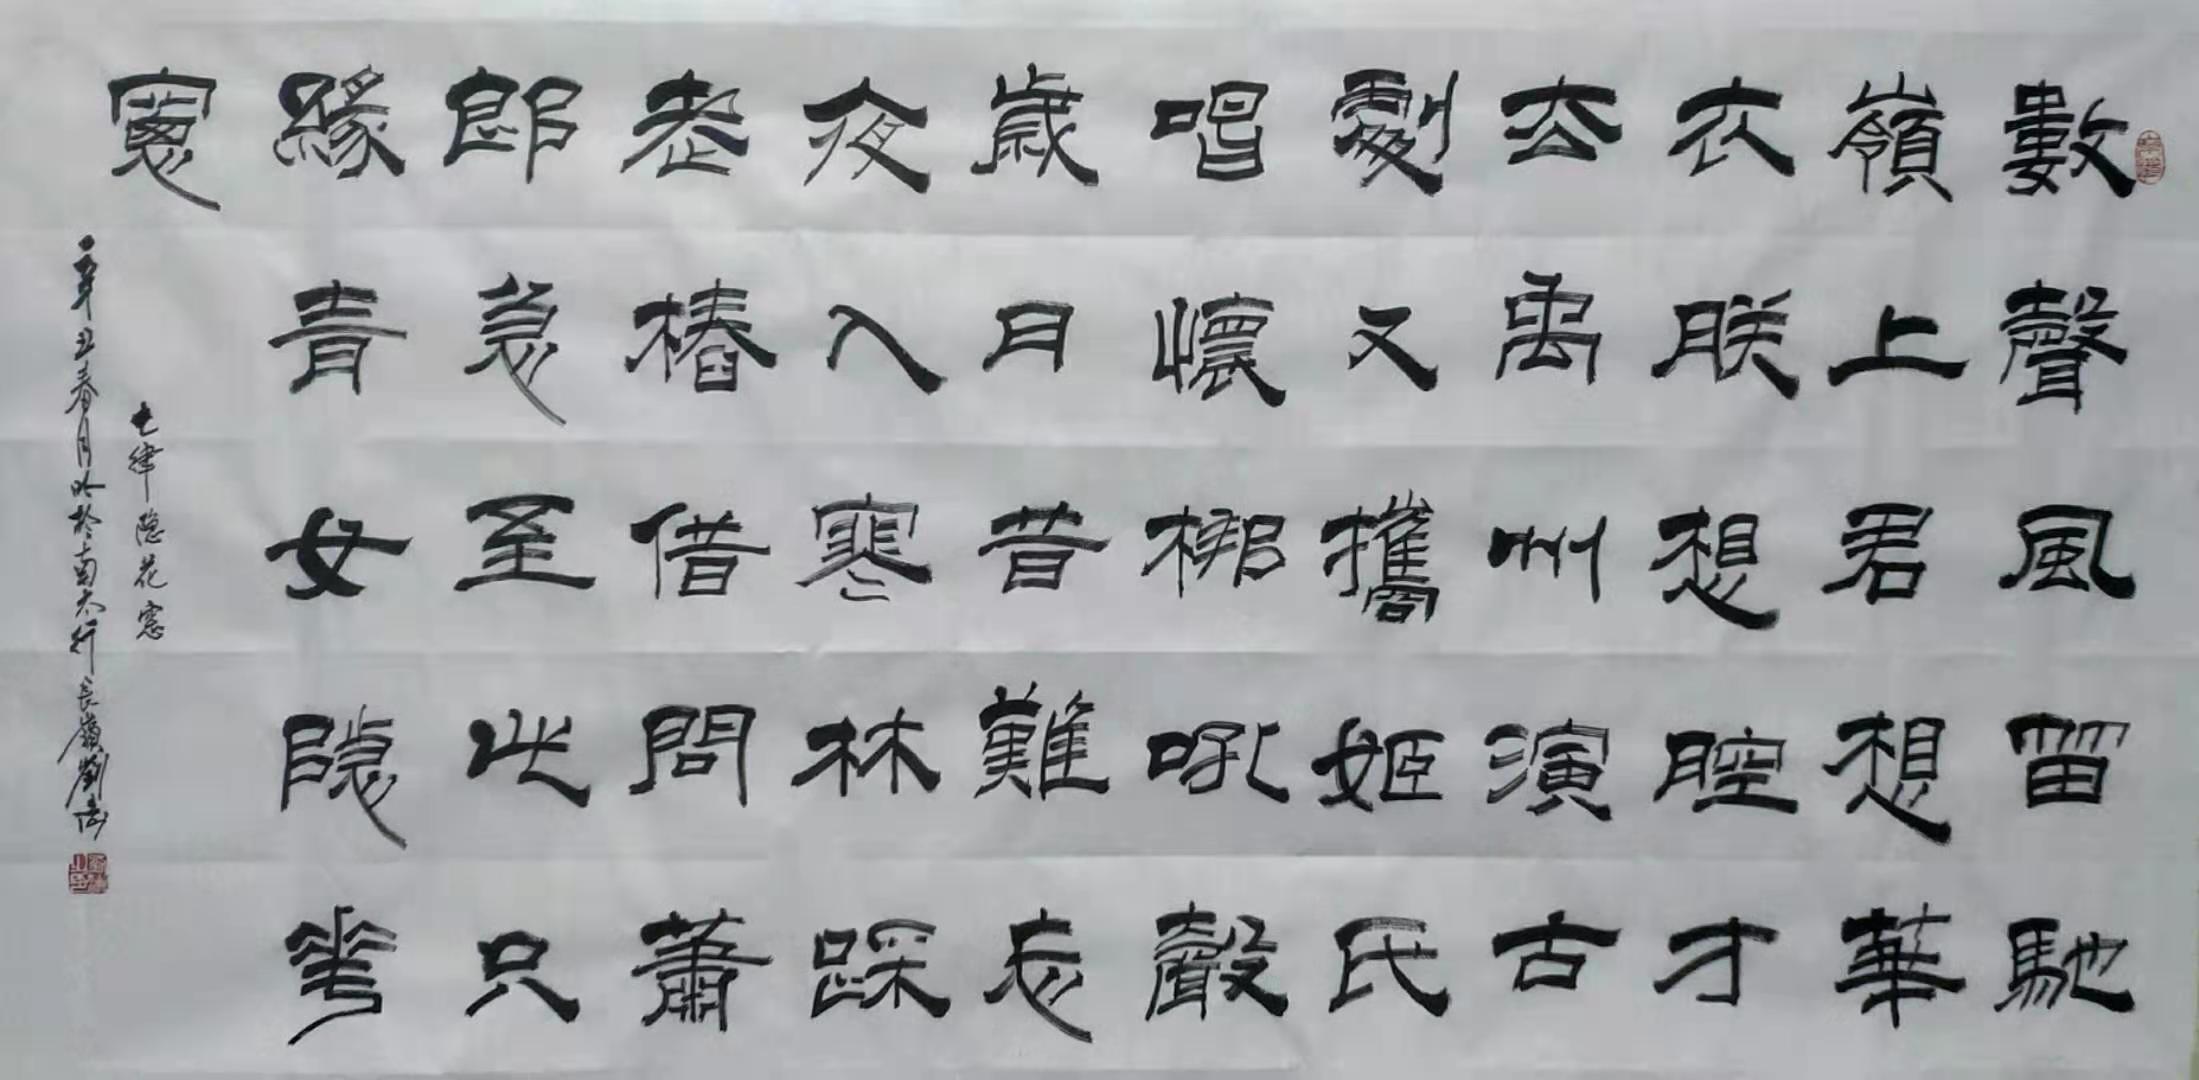 數聲風留馳
嶺上君想華
衣朕想腔才
去禹州演古
劇又攜姬氏
唱懷梆吼聲
歲月昔難忘
夜入寒林踩
老樁借問蕭
郎急至此只
緣青女隱花
窻
七律隐花窓
辛丑春月吟於南太行長嶺劉